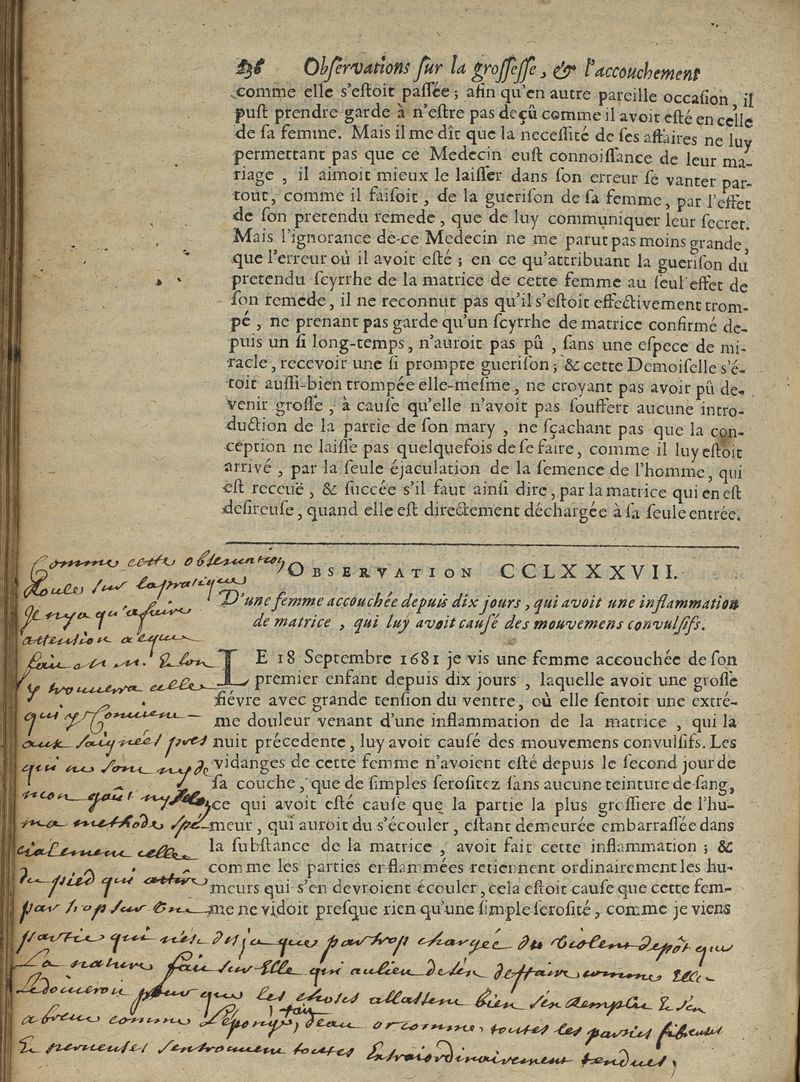 236 Obſervations ſur la groſſeſſe, & l'accouchement
comme elle s'eſtoit paſſée; afin qu'en autre pareille occaſion, il
puſt prendre garde à n'eſtre pas deçû comme il avoit eſté en celle
de ſa femme. Mais il me dît que la neceſſité de ſes affaires ne luy
permettant pas que ce Medecin euſt connoiſſance de leur ma-
riage, il aimoit mieux le laiſſer dans ſon erreur ſe vanter par-
tout, comme il faiſoit, de la gueriſon de ſa femme, par l'effet
de ſon pretendu remede, que de luy communiquer leur ſecret.
Mais l'ignorance de ce Medecin ne me parut pas moins grande,
que l'erreur où il avoit eſté; en ce qu'attribuant la gueriſon du
pretendu ſcyrrhe de la matrice de cette femme au ſeul effet de
ſon remede, il ne reconnut pas qu'il s'eſtoit effectivement trom-
pé, ne prenant pas garde qu'un ſcyrrhe de matrice confirmé de-
puis un ſi long-temps, n'auroit pas pû, ſans une eſpece de mi-
racle, recevoir une ſi prompte gueriſon; & cette Demoiſelle s'é-
toit auſſi-bien trompée elle-meſme, ne croyant pas avoir pû de-
venir groſſe, à cauſe qu'elle n'avoit pas ſouffert aucune intro-
duction de la partie de ſon mary, ne ſçachant pas que la con-
ception ne laiſſe pas quelquefois de ſe faire, comme il luy eſtoit
arrivé, par la ſeule éjaculation de la ſemence de l'homme, qui
eſt receuë, & ſuccée s'il faut ainſi dire, par la matrice qui en eſt
deſireuſe, quand elle eſt directement déchargée à ſa ſeule entrée.
OBSERVATION CCLXXXVII.
D'une femme accouchée depuis dix jours, qui avoit une inflammation
de matrice, qui luy avoit cauſé des mouvemens convulſifs.
LE 18 Septembre 1681 je vis une femme accouchée de ſon
premier enfant depuis dix jours, laquelle avoit une groſſe
fiévre avec grande tenſion du ventre, où elle ſentoit une extré-
me douleur venant d'une inflammation de la matrice, qui la
nuit précedente, luy avoit cauſé des mouvemens convulſifs. Les
vidanges de cette femme n'avoient eſté depuis le ſecond jour de
ſa couche, que de ſimples ſeroſitez ſans aucune teinture de ſang,
ce qui avoit eſté cauſe que la partie la plus groſſiere de l'hu-
meur, qui auroit du s'écouler, eſtant demeurée embarraſſée dans
la ſubſtance de la matrice, avoit fait cette inflammation; &
comme les parties enflammées retiennent ordinairement les hu-
meurs qui s'en devroient écouler, cela eſtoit cauſe que cette fem-
me ne vidoit preſque rien qu'une ſimple ſeroſité, comme je viens
Comme cette obseruation
Roule sur la pratique
Je n'y a qu'a faire
attention a ce que
lon
y trouuera celle
qui y Conuien
aux saignées pres
qui ne sont ny de
mon gout ny selon
ma methode spe-
cialement celle
du pied qui attire
par trop sur une
partie qui n'est desja que par trop chargée du violent depôt que
La nature fait sur Elle qui au lieu de s'en deffaire comme elle
Le deuroit pour que les choses allassent bien s'en remplit & s'en
abreue comme l'eponge fait d'eau or comme toutes les parties fibreuses
& nerueuses s'entrouuent toutes Extraordinairement tendues,